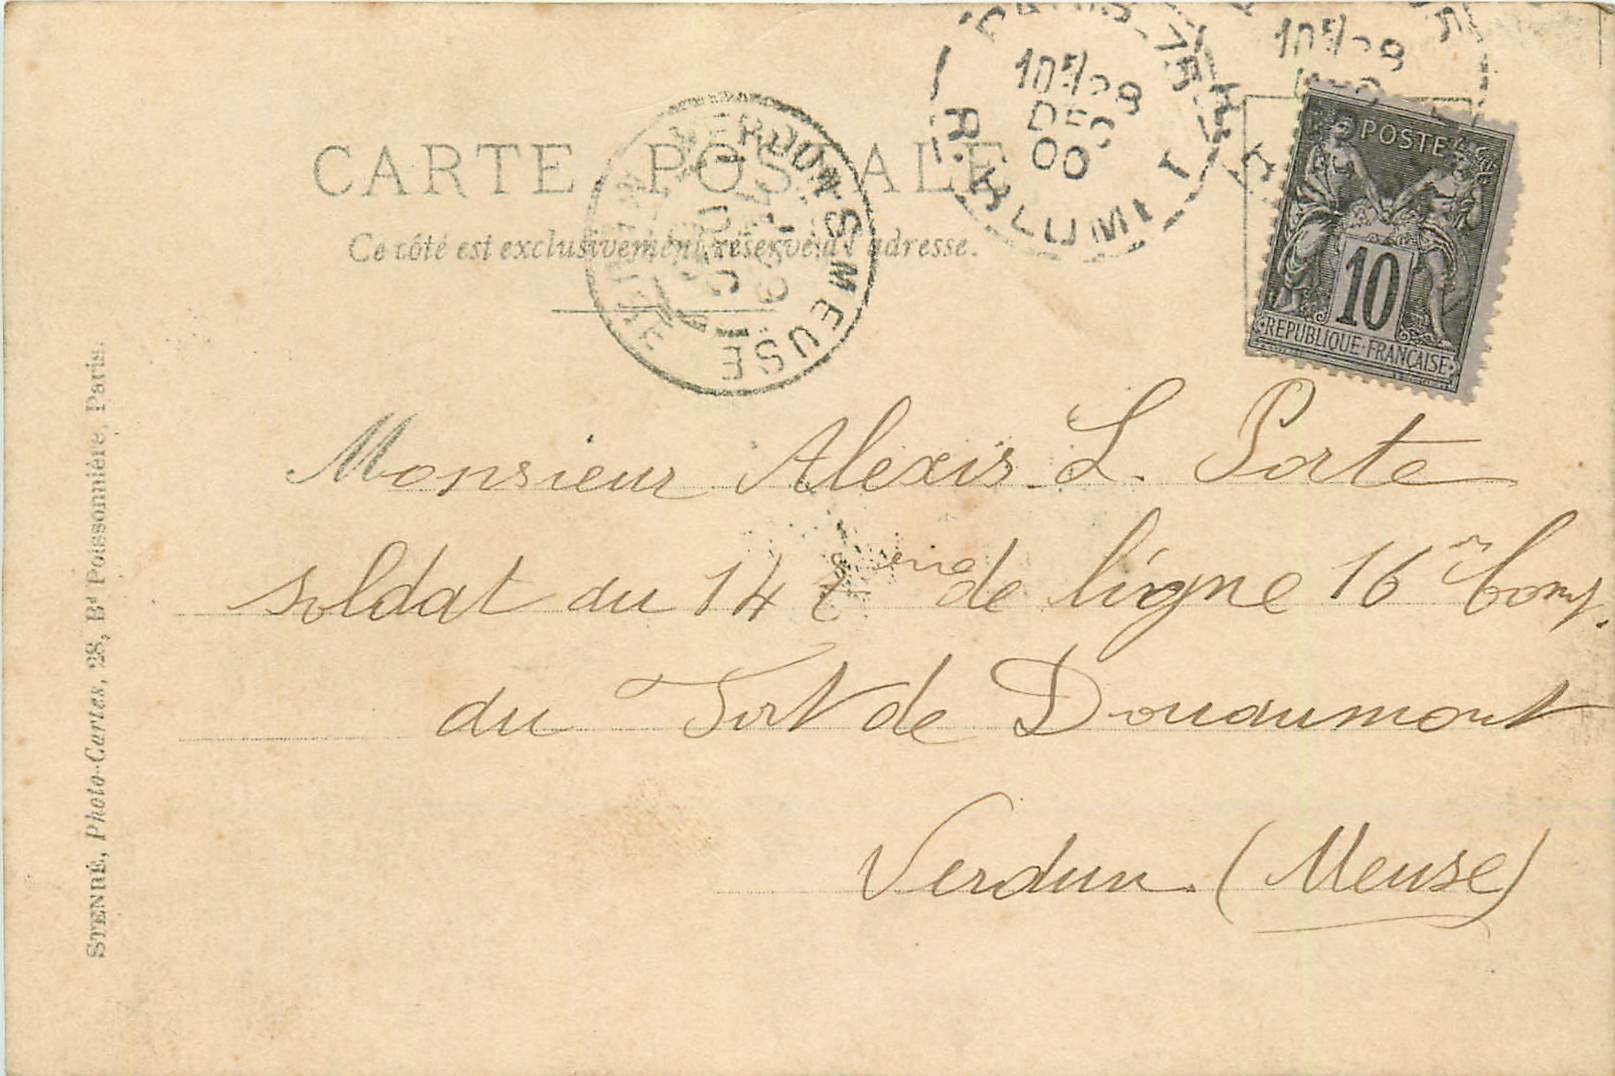 CARTE POSTALE
Ce côté est exclusivement réservé à l'adresse.
VERDUN-S-MEUSE
MEUSE
DEC
10E/28
DEC
00
R. BLOMET
10E/28
POSTE
10
REPUBLIQUE FRANÇAISE
Monsieur Alexis L. Porte
soldat du 147eme de ligne 16e Comp.
du Fort de Douaumont
Verdun (Meuse)
STENNÉ, Photo-Cartes, 28, Bd Poissonnière, Paris.